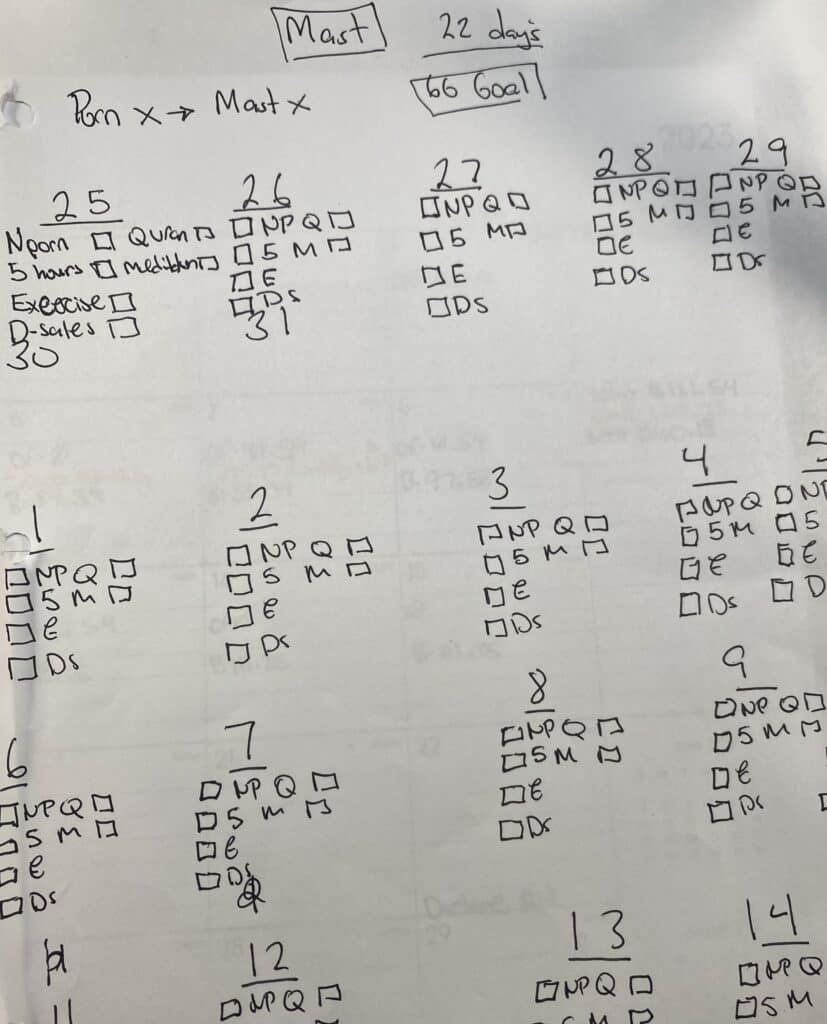 Mast 22 days
66 Goal
Porn x → Mast x
25
Nporn □ Quran □
5 hours □ □
Exercise □
D-sales □
30
26
□ NP Q □
□ 5 M □
□ E
□ DS
31
27
□ NP Q □
□ 5 M □
□ E
□ DS
28
□ NP Q □
□ 5 M □
□ E
□ DS
29
□ NP Q □
□ 5 M □
□ E
□ DS
1
□ NP Q □
□ 5 M □
□ E
□ DS
2
□ NP Q □
□ 5 M □
□ E
□ DS
3
□ NP Q □
□ 5 M □
□ E
□ DS
4
□ NP Q
□ 5 M
□ E
□ DS
5
□ NP
□ 5
□ E
□ D
6
□ NP Q □
□ 5 M □
□ E
□ DS
7
□ NP Q □
□ 5 M □
□ E
□ DS
8
□ NP Q □
□ 5 M □
□ E
□ DS
9
□ NP Q □
□ 5 M □
□ E
□ DS
11
12
□ NP Q □
13
□ NP Q □
5 M □
14
□ NP Q
□ 5 M